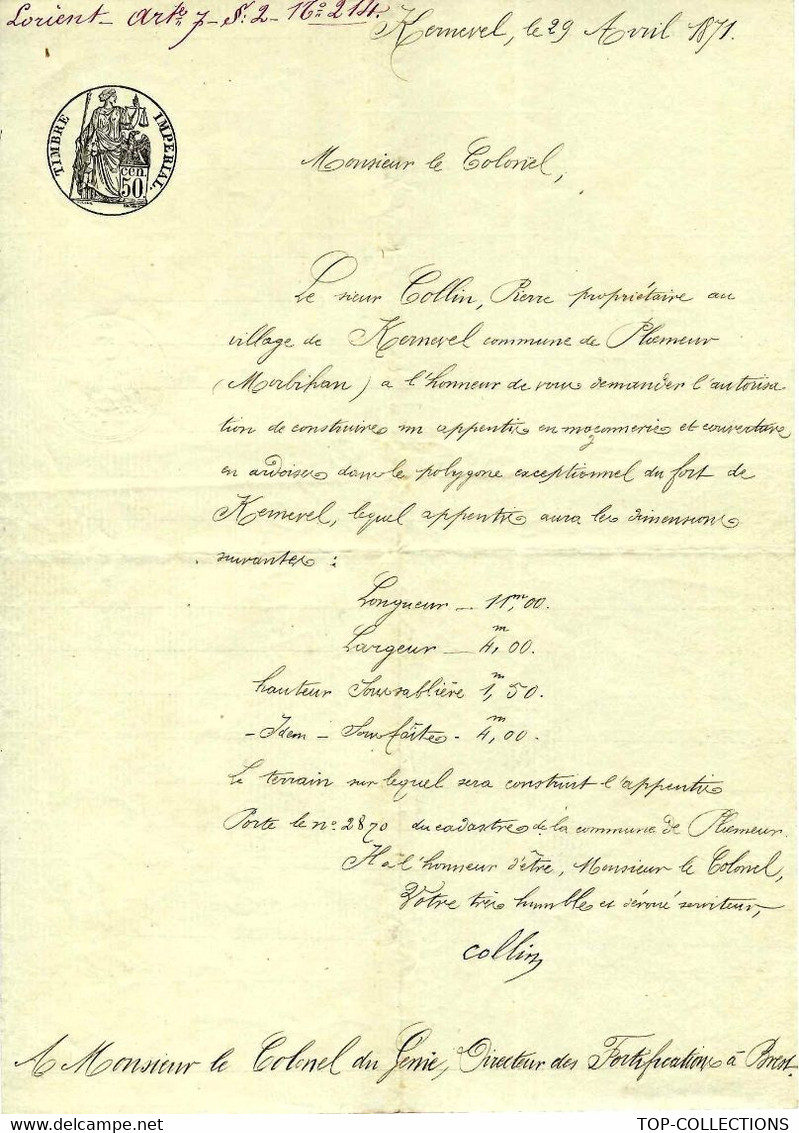 Lorient - Art.e 7 - S: 2 - No 214.
Kernevel, le 29 Avril 1871.
TIMBRE IMPERIAL.
CEN. 50
Monsieur le Colonel,
Le sieur Collin, Pierre propriétaire au
village de Kernevel commune de Plœmeur
(Morbihan) a l'honneur de vous demander l'autorisa
tion de construire un appentis en maçonnerie et couverture
en ardoises dans le polygone exceptionnel du fort de
Kernevel, lequel appentis aura les dimensions
suivantes :
Longueur - 11,m00.
Largeur - 4,m00.
hauteur Sous sablière 1,m50.
- Idem - Sous faîte - 4,m00.
Le terrain sur lequel sera construit l'appentis
Porte le no 2870 du cadastre de la commune de Plœmeur.
Il a l'honneur d'être, Monsieur le Colonel,
Votre très humble et dévoué serviteur,
Collin
A Monsieur le Colonel du Génie, Directeur des Fortifications à Brest.
TOP-COLLECTIONS